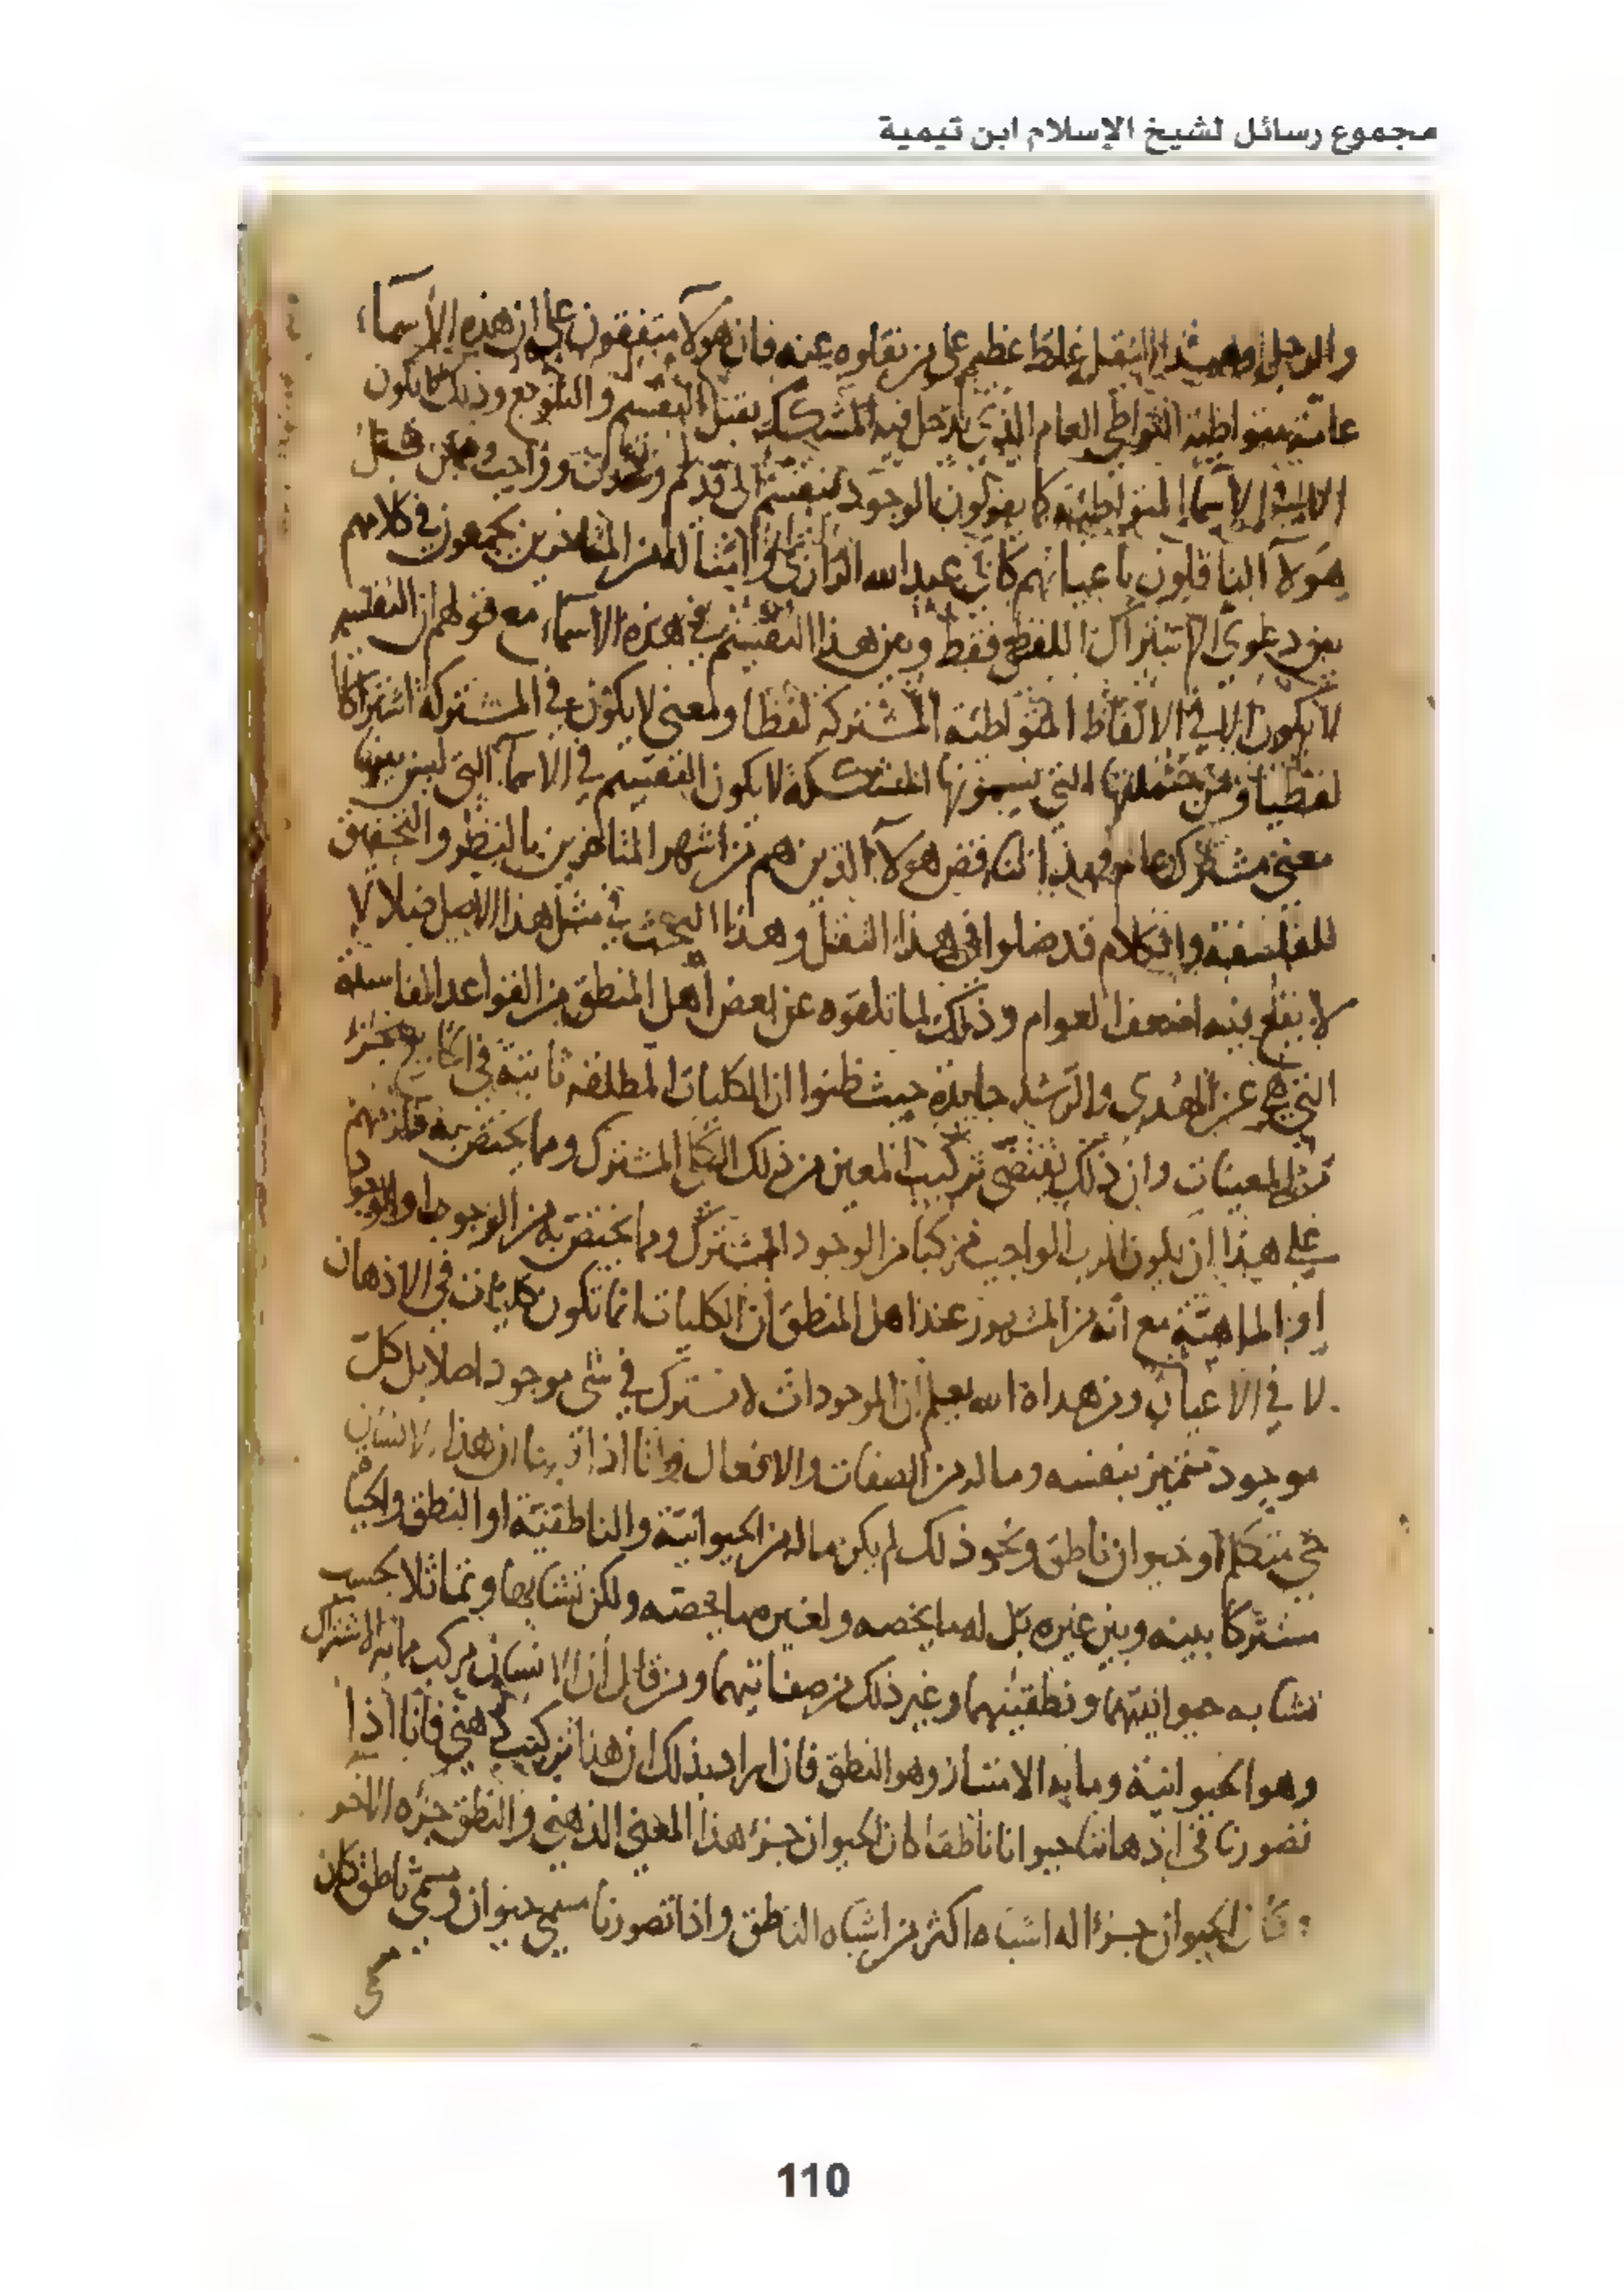 مجموع رسائل لشيخ الإسلام ابن تيمية
النقل غلط عظيم على من نقلوه عنه فان هولآ متفقون على ان هذه الأسمآء
عامة متواطئة التواطي العام الذي يدخل فيه المشككه تقبل التقسيم والتنويع وذلك لا يكون
الا في الاسمآء المتواطئة كما يقولون الوجود ينقسم الى قديم ومحدث وواجب وممكن
هولآ الناقلون باعيانهم كابي عبد الله الرازي وامثاله من المتاخرين يجمعون في كلامهم
بين دعوى الاشتراك اللفظي فقط وبين هذا التقسيم في هذه الاسمآء مع قولهم ان التقسيم
لا يكون الا في الالفاظ المتواطئة المشتركة لفظا ومعنى لا يكون في المشتركة اشتراكا
لفظيا ومن جملتها التي يسمونها المشككه لا يكون التقسيم في الاسمآء التي ليس بينها
معنى مشترك عام فهذا تناقض هولآء الذين هم من اشهر المتاخرين بالنظر والتحقيق
للفلسفة والكلام قد ضلوا في هذا النقل وهذا البحث في مثل هذا الاصل ضلالا
لا يقع فيه اضعف العوام وذلك لما تلقوه عن بعض اهل المنطق من القواعد الفاسدة
التي هي عن الهدى والرشد حايدة حيث ظنوا ان الكليات المطلقه ثابتة في الخارج جزء
من المعينات وان ذلك يقتضي تركيب المعين من ذلك الكلي المشترك ومما يختص به فلزمهم
على هذا ان يكون الرب الواجب مركبا من الوجود المشترك ومما يختص به من الوجوب او الوجود
او الماهية مع انه من المشهور عند اهل المنطق ان الكليات انما تكون كليات في الاذهان
لا في الاعيان ومن هداه الله يعلم ان الموجودات لا تشترك في شي موجود اصلا بل كل
موجود متميز بنفسه وما له من الصفات والافعال وانا اذا قلنا ان هذا الانسان
حي متكلم او حيوان ناطق ونحو ذلك لم يكن ما له من الحيوانية والناطقية او النطق والحياة
مشتركا بينه وبين غيره بل له ما يخصه ولغيره ما يخصه ولكن تشابها وتماثلا بحسب
تشابه حيوانيتهما ونطقيتهما وغير ذلك من صفاتهما ومن قال ان الانسان مركب مما به الاشتراك
وهو الحيوانية وما به الامتياز وهو النطق فان اراد بذلك ان هنا تركيب ذهني فانا اذا
تصورنا في اذهاننا حيوانا ناطقا كان الحيوان جزء هذا المعنى الذهني والنطق جزءه الاخر
وكان الحيوان جزءا له اشباه اكثر من اشباه الناطق واذا تصورنا مسمى حيوان ومسمى ناطق كان
110